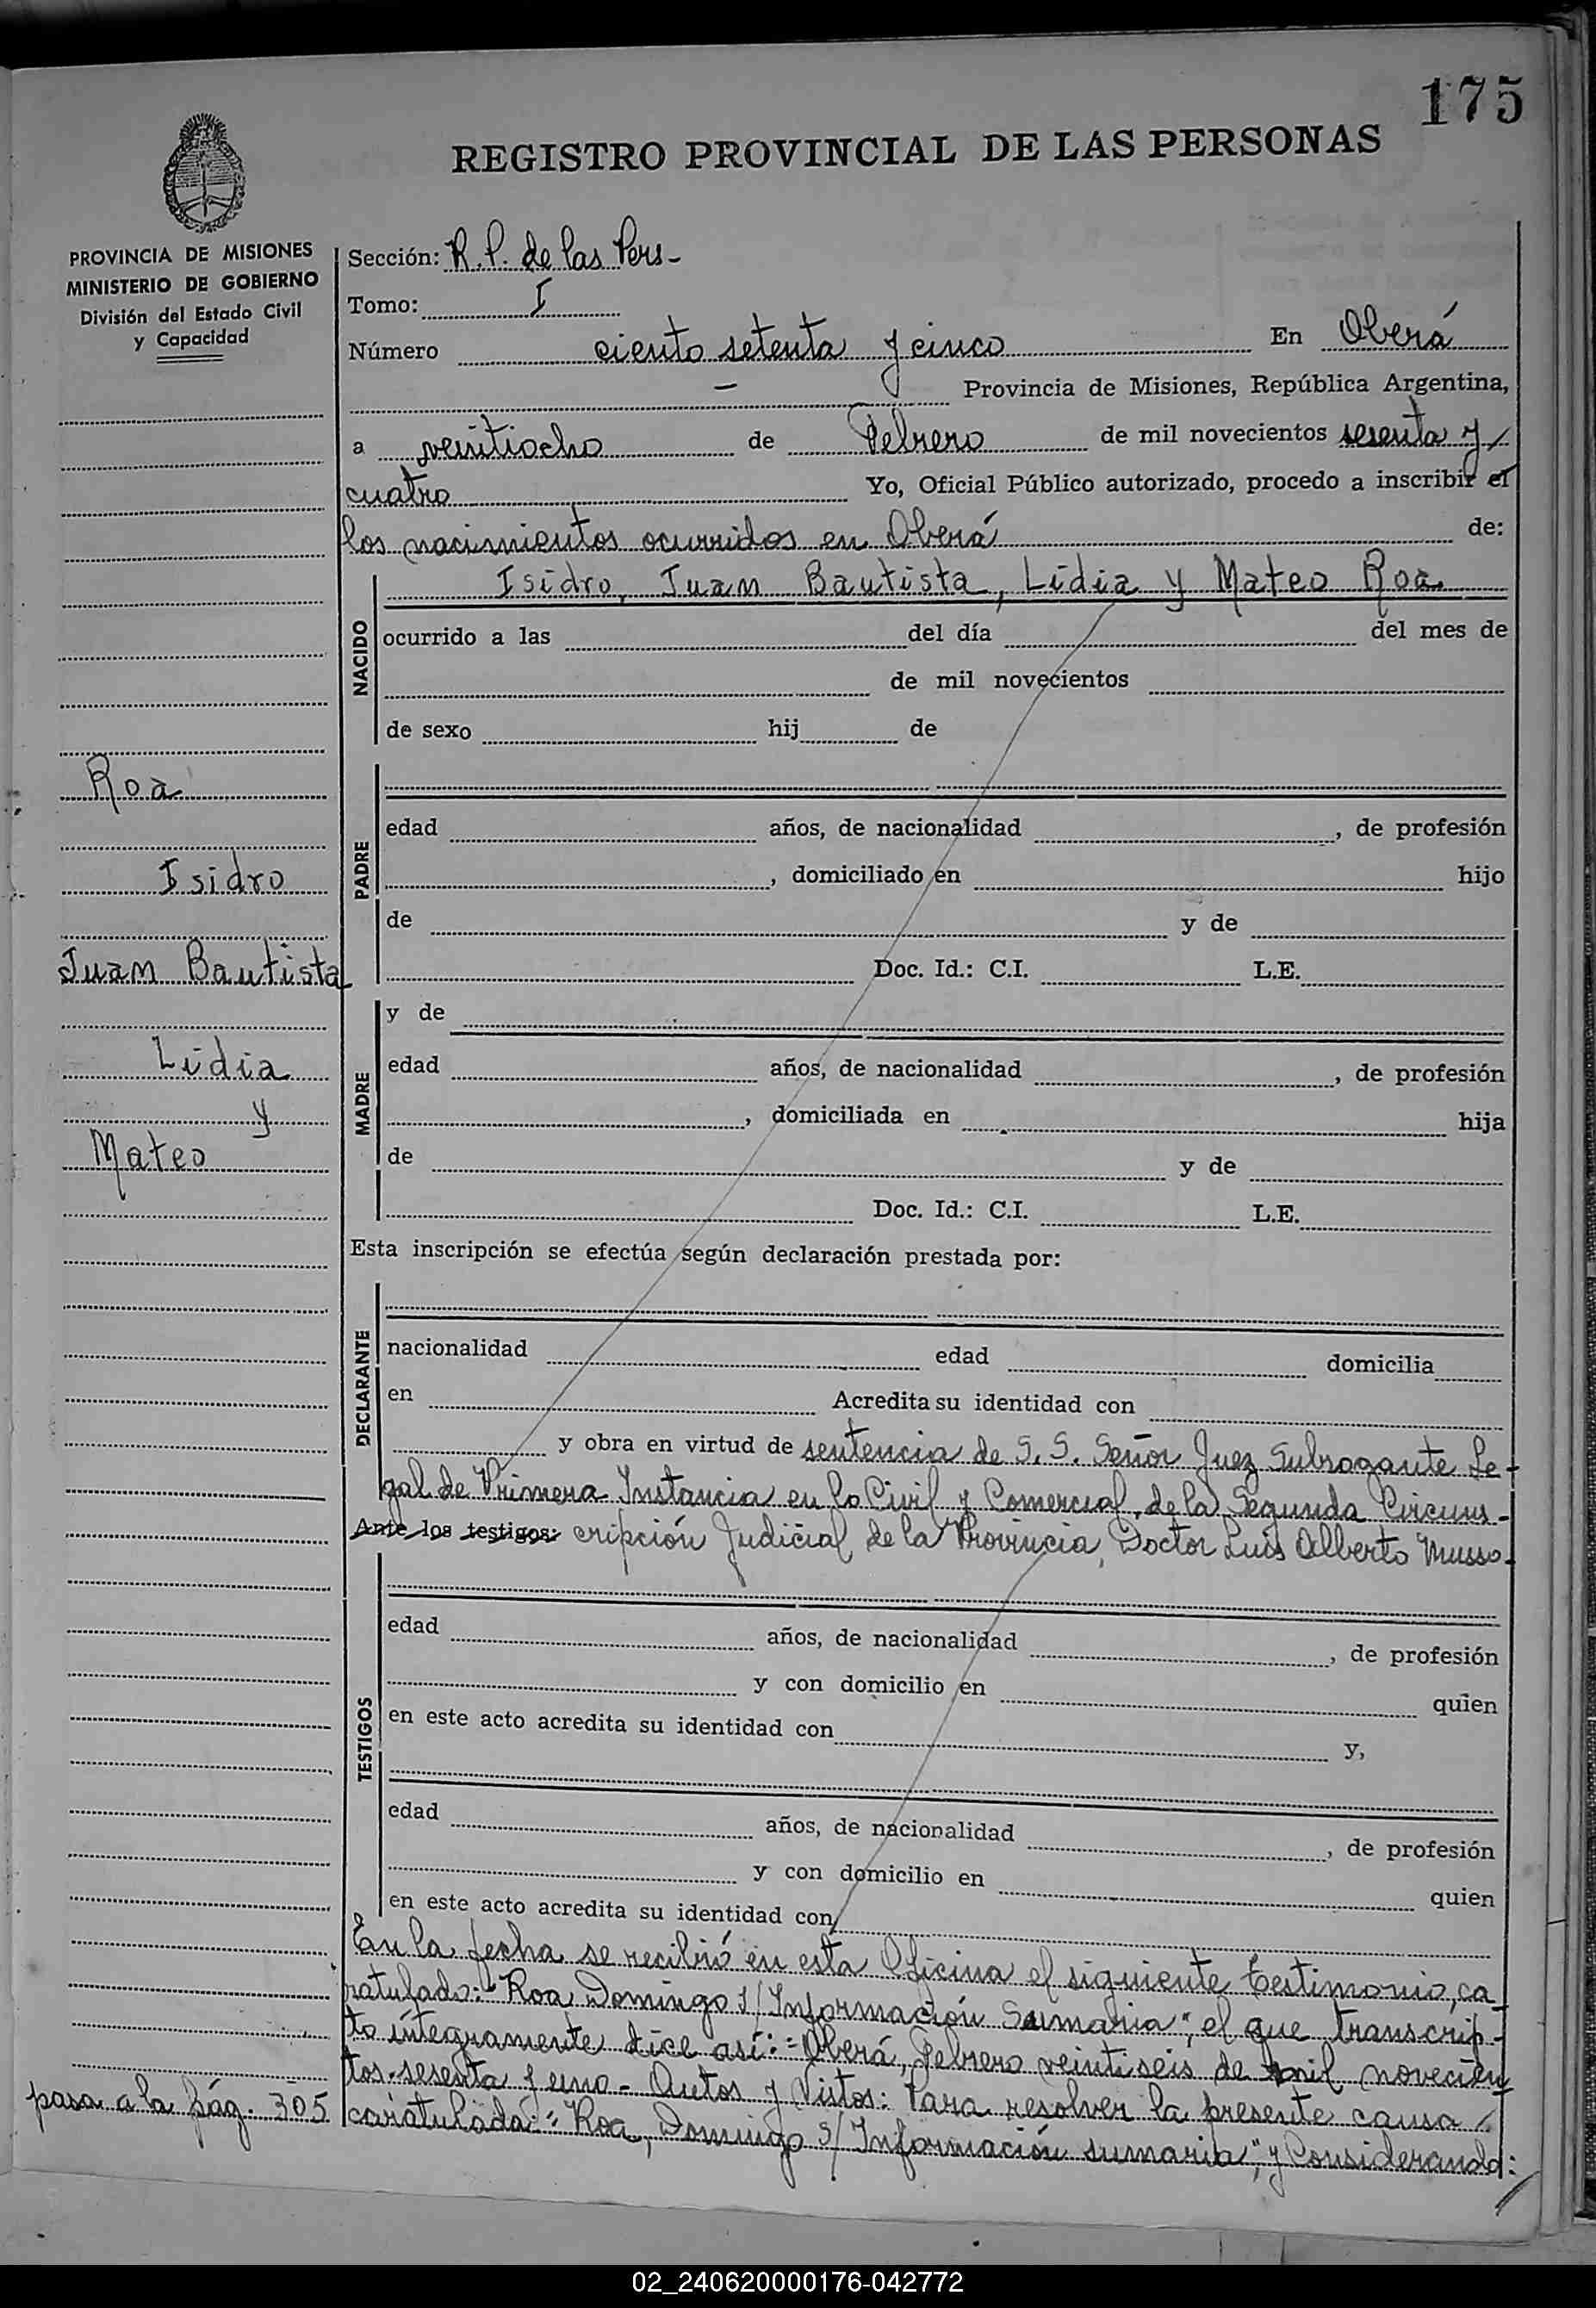 175
REGISTRO PROVINCIAL DE LAS PERSONAS
PROVINCIA DE MISIONES
MINISTERIO DE GOBIERNO
División del Estado Civil
y Capacidad
Sección: R. P. de las Pers-
Tomo: I
Número ciento setenta y cinco En Oberá
— Provincia de Misiones, República Argentina,
a veintiocho de Febrero de mil novecientos sesenta y
cuatro Yo, Oficial Público autorizado, procedo a inscribir el
los nacimientos ocurridos en Oberá de:
NACIDO
Isidro, Juan Bautista, Lidia y Mateo Roa
ocurrido a las del día del mes de
de mil novecientos
de sexo hij de
Roa
Isidro
Juan Bautista
Lidia
y
Mateo
PADRE
edad años, de nacionalidad , de profesión
, domiciliado en hijo
de y de
Doc. Id.: C.I. L.E.
MADRE
y de
edad años, de nacionalidad , de profesión
, domiciliada en hija
de y de
Doc. Id.: C.I. L.E.
Esta inscripción se efectúa según declaración prestada por:
DECLARANTE
nacionalidad edad domicilia
en Acredita su identidad con
y obra en virtud de sentencia de S. S. Señor Juez Subrogante Le-
gal de Primera Instancia en lo Civil y Comercial, de la Segunda Circuns-
Ante los testigos: cripción Judicial de la Provincia, Doctor Luis Alberto Musso.
TESTIGOS
edad años, de nacionalidad , de profesión
y con domicilio en quien
en este acto acredita su identidad con y,
edad años, de nacionalidad , de profesión
y con domicilio en quien
en este acto acredita su identidad con
En la fecha se recibió en esta Oficina el siguiente testimonio, ca-
ratulado: "Roa Domingo s/Información Sumaria", el que transcrip-
to íntegramente dice así: "Oberá, Febrero veintiseis de mil novecien
tos sesenta y uno - Autos y Vistos: Para resolver la presente causa
caratulada: "Roa, Domingo s/Información sumaria", y Considerando:
pasa a la pág. 305
02_240620000176-042772